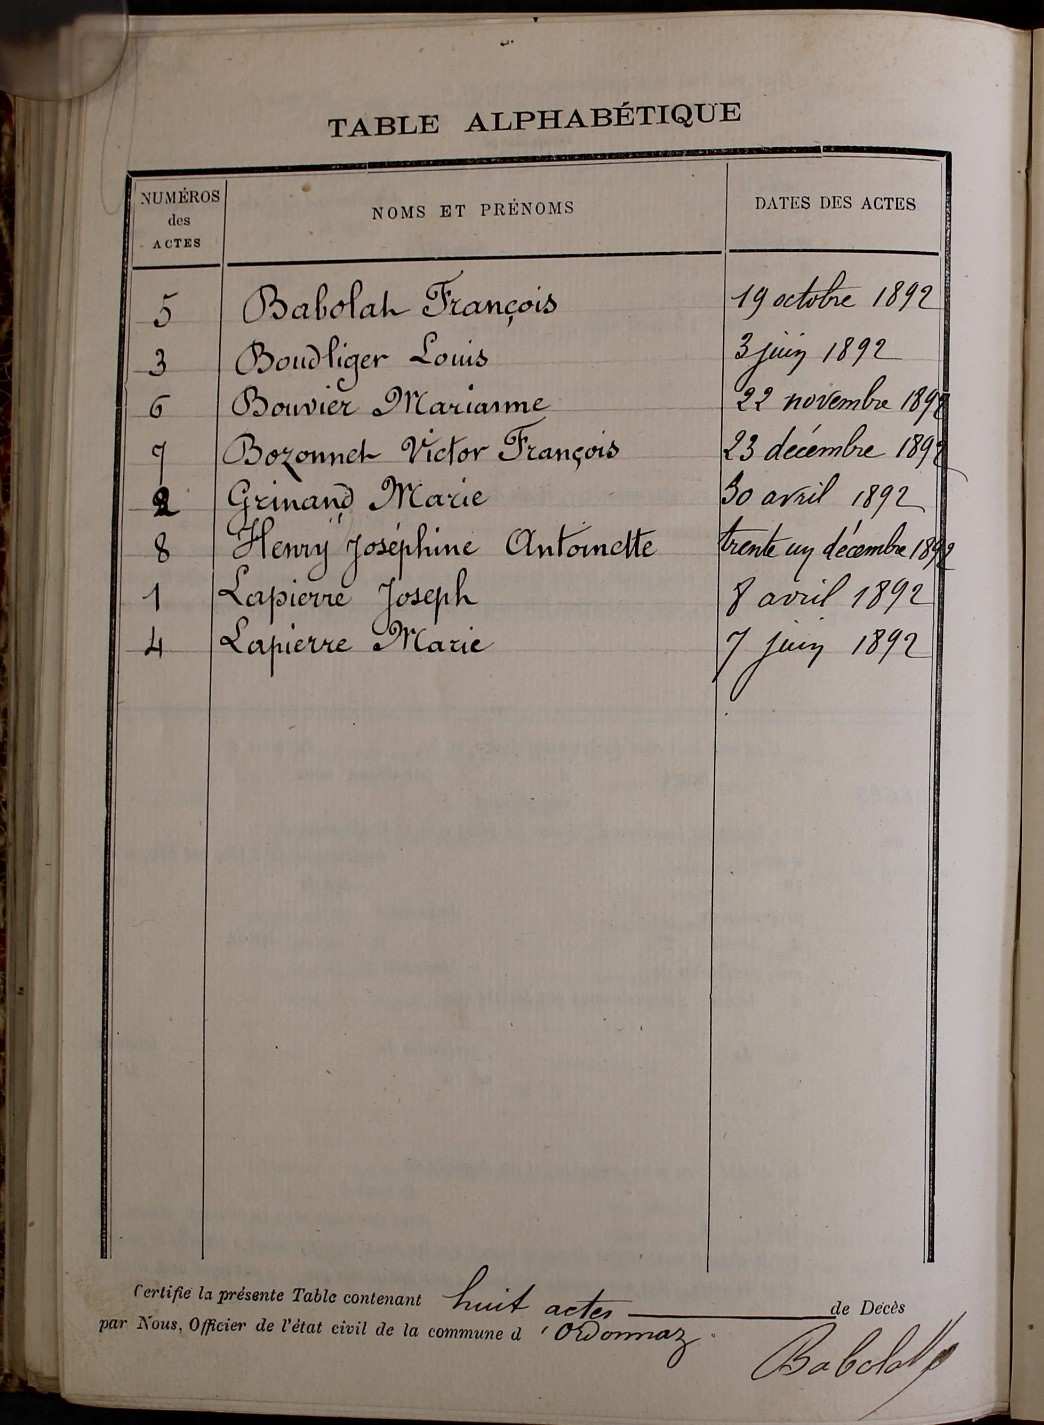 TABLE ALPHABÉTIQUE
NUMÉROS des ACTES NOMS ET PRÉNOMS DATES DES ACTES
5 Babolat François 19 octobre 1892
3 Boudliger Louis 3 juin 1892
6 Bouvier Marianne 22 novembre 1892
7 Bozonnet Victor François 23 décembre 1892
2 Grinand Marie 30 avril 1892
8 Henry Joséphine Antoinette trente un décembre 1892
1 Lapierre Joseph 8 avril 1892
4 Lapierre Marie 7 juin 1892
Certifié la présente Table contenant huit actes de Décès
par Nous, Officier de l'état civil de la commune d'Ordonnaz.
Babolat